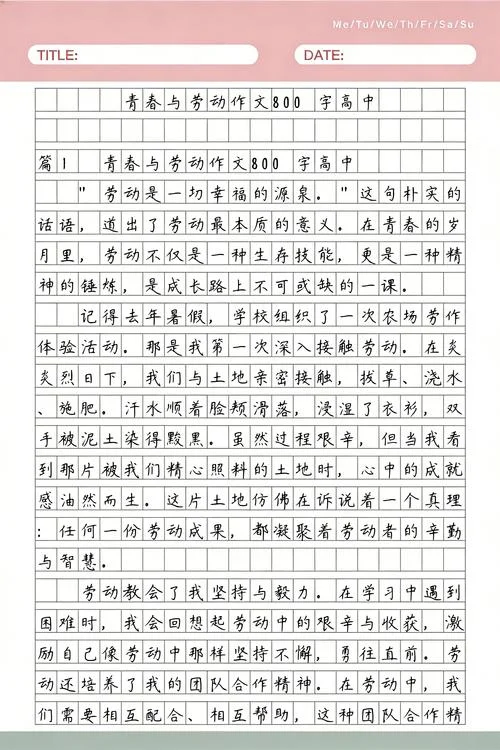 Me/Tu/We/Th/Fr/Sa/Su
TITLE: DATE:
青春与劳动作文800 字高中
篇1 青春与劳动作文800 字高中
"劳动是一切幸福的源泉。"这句朴实的
话语,道出了劳动最本质的意义。在青春的岁
月里,劳动不仅是一种生存技能,更是一种精
神的锤炼,是成长路上不可或缺的一课。
记得去年暑假,学校组织了一次农场劳作
体验活动。那是我第一次深入接触劳动。在炎
炎烈日下,我们与土地亲密接触,拔草、浇水
、施肥。汗水顺着脸颊滑落,浸湿了衣衫,双
手被泥土染得黢黑。虽然过程艰辛,但当我看
到那片被我们精心照料的土地时,心中的成就
感油然而生。这片土地仿佛在诉说着一个真理
:任何一份劳动成果,都凝聚着劳动者的辛勤
与智慧。
劳动教会了我坚持与毅力。在学习中遇到
困难时,我会回想起劳动中的艰辛与收获,激
励自己像劳动中那样坚持不懈,勇往直前。劳
动还培养了我的团队合作精神。在劳动中,我
们需要相互配合、相互帮助,这种团队合作精